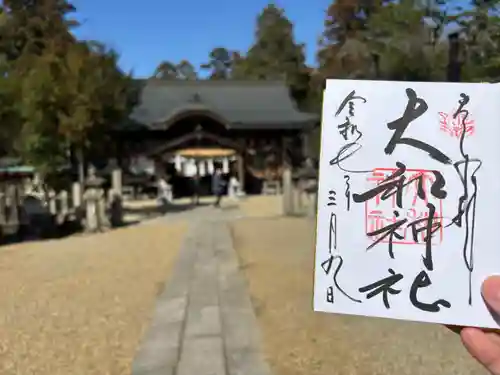 奉拝
大和神社
令和七年三月九日